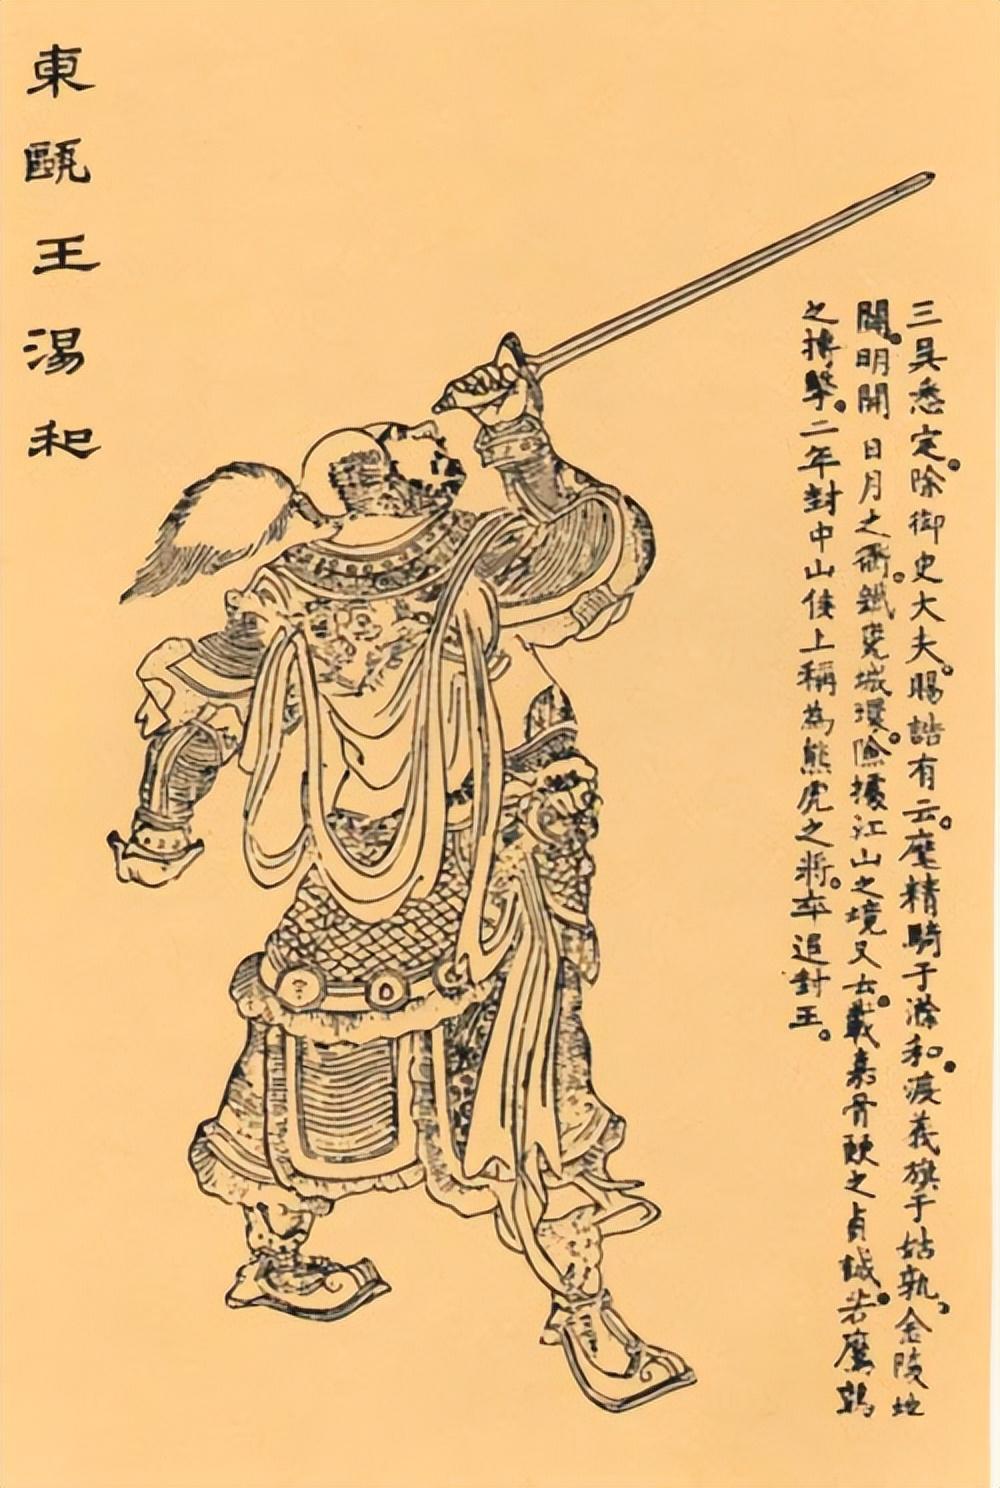 三吳悉定。除御史大夫。賜誥有云。麾精騎于滁和。渡義旗于姑孰。金陵地
闢。明開日月之衢。鐵甕城環。險據江山之境又云。骨鯁之貞誠。若鷹鸇
之搏擊。二年封中山侯上稱為熊虎之將。卒追封王。
東甌王湯和